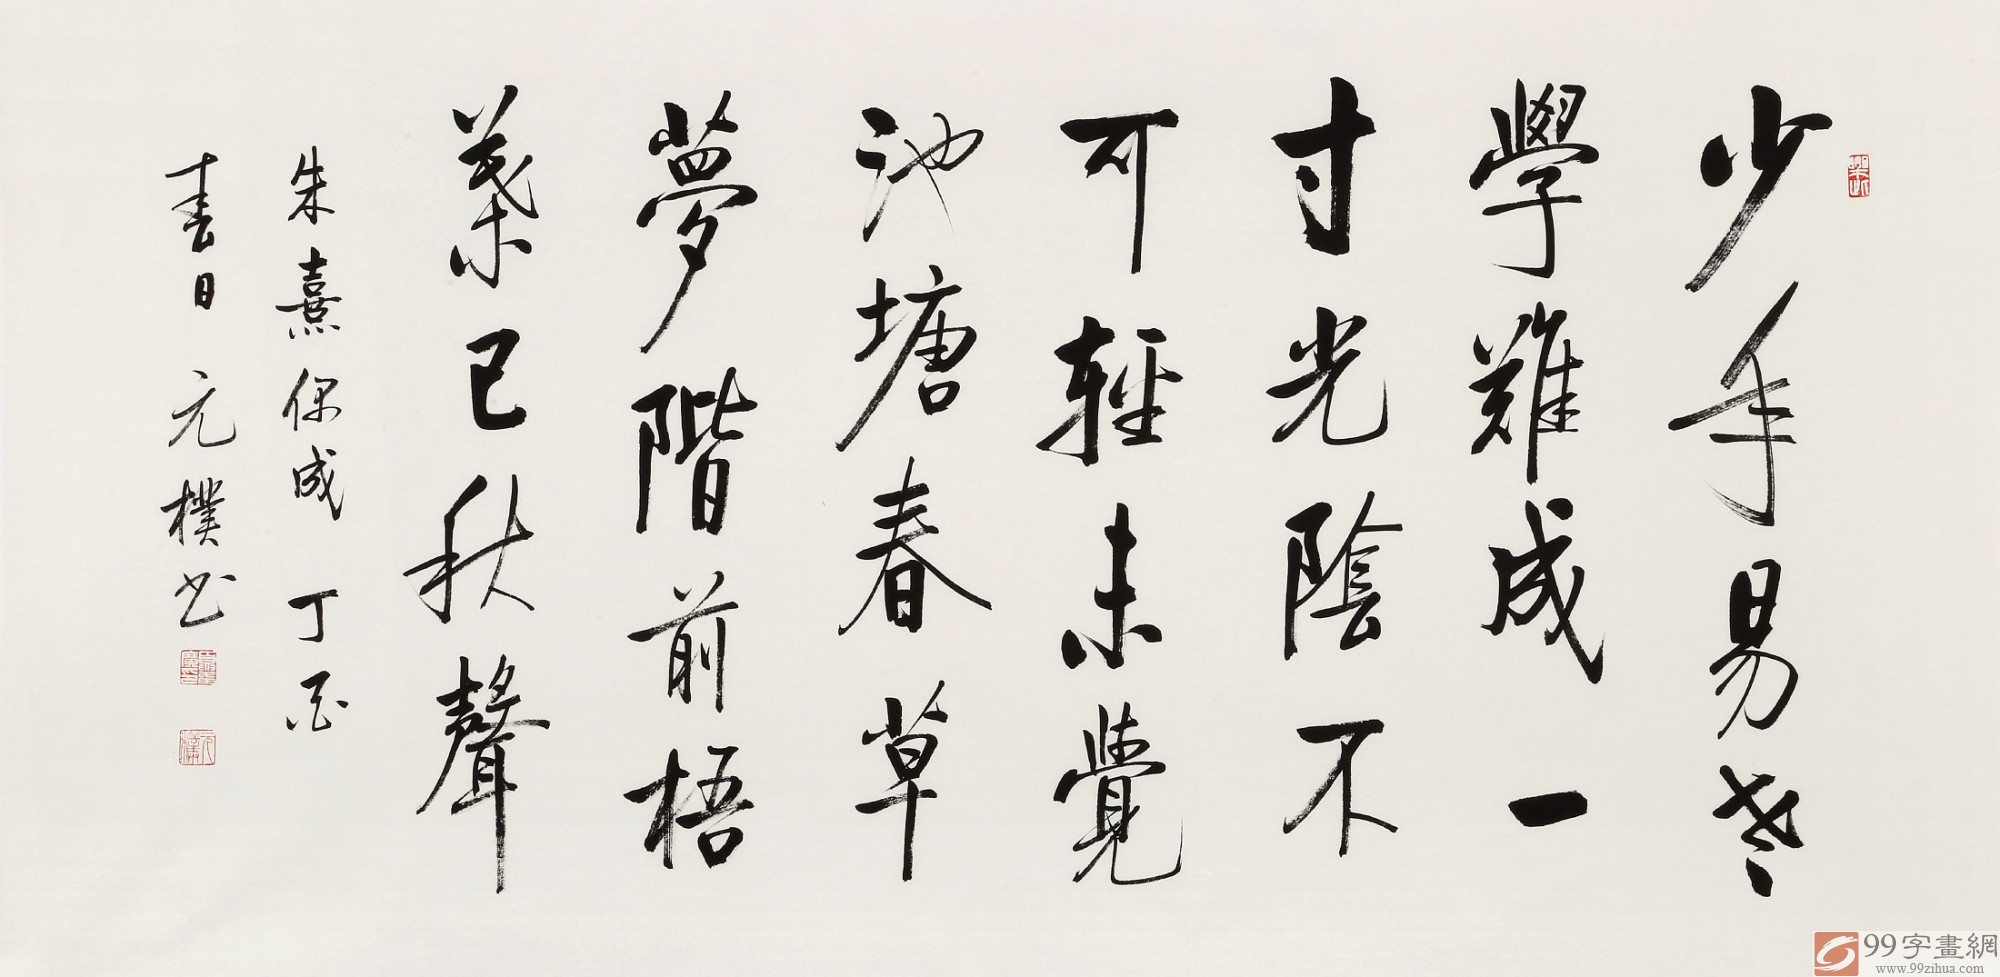 少年易老
學難成一
寸光陰不
可輕未覺
池塘春草
夢階前梧
葉已秋聲
朱熹偶成 丁酉
春日 元樸书
99字畫網
www.99zihua.com